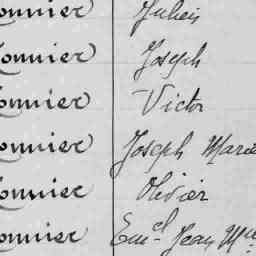 onnier Julien
onnier Joseph
onnier Victor
onnier Joseph Marie
onnier Olivier
onnier Em.el Jean M